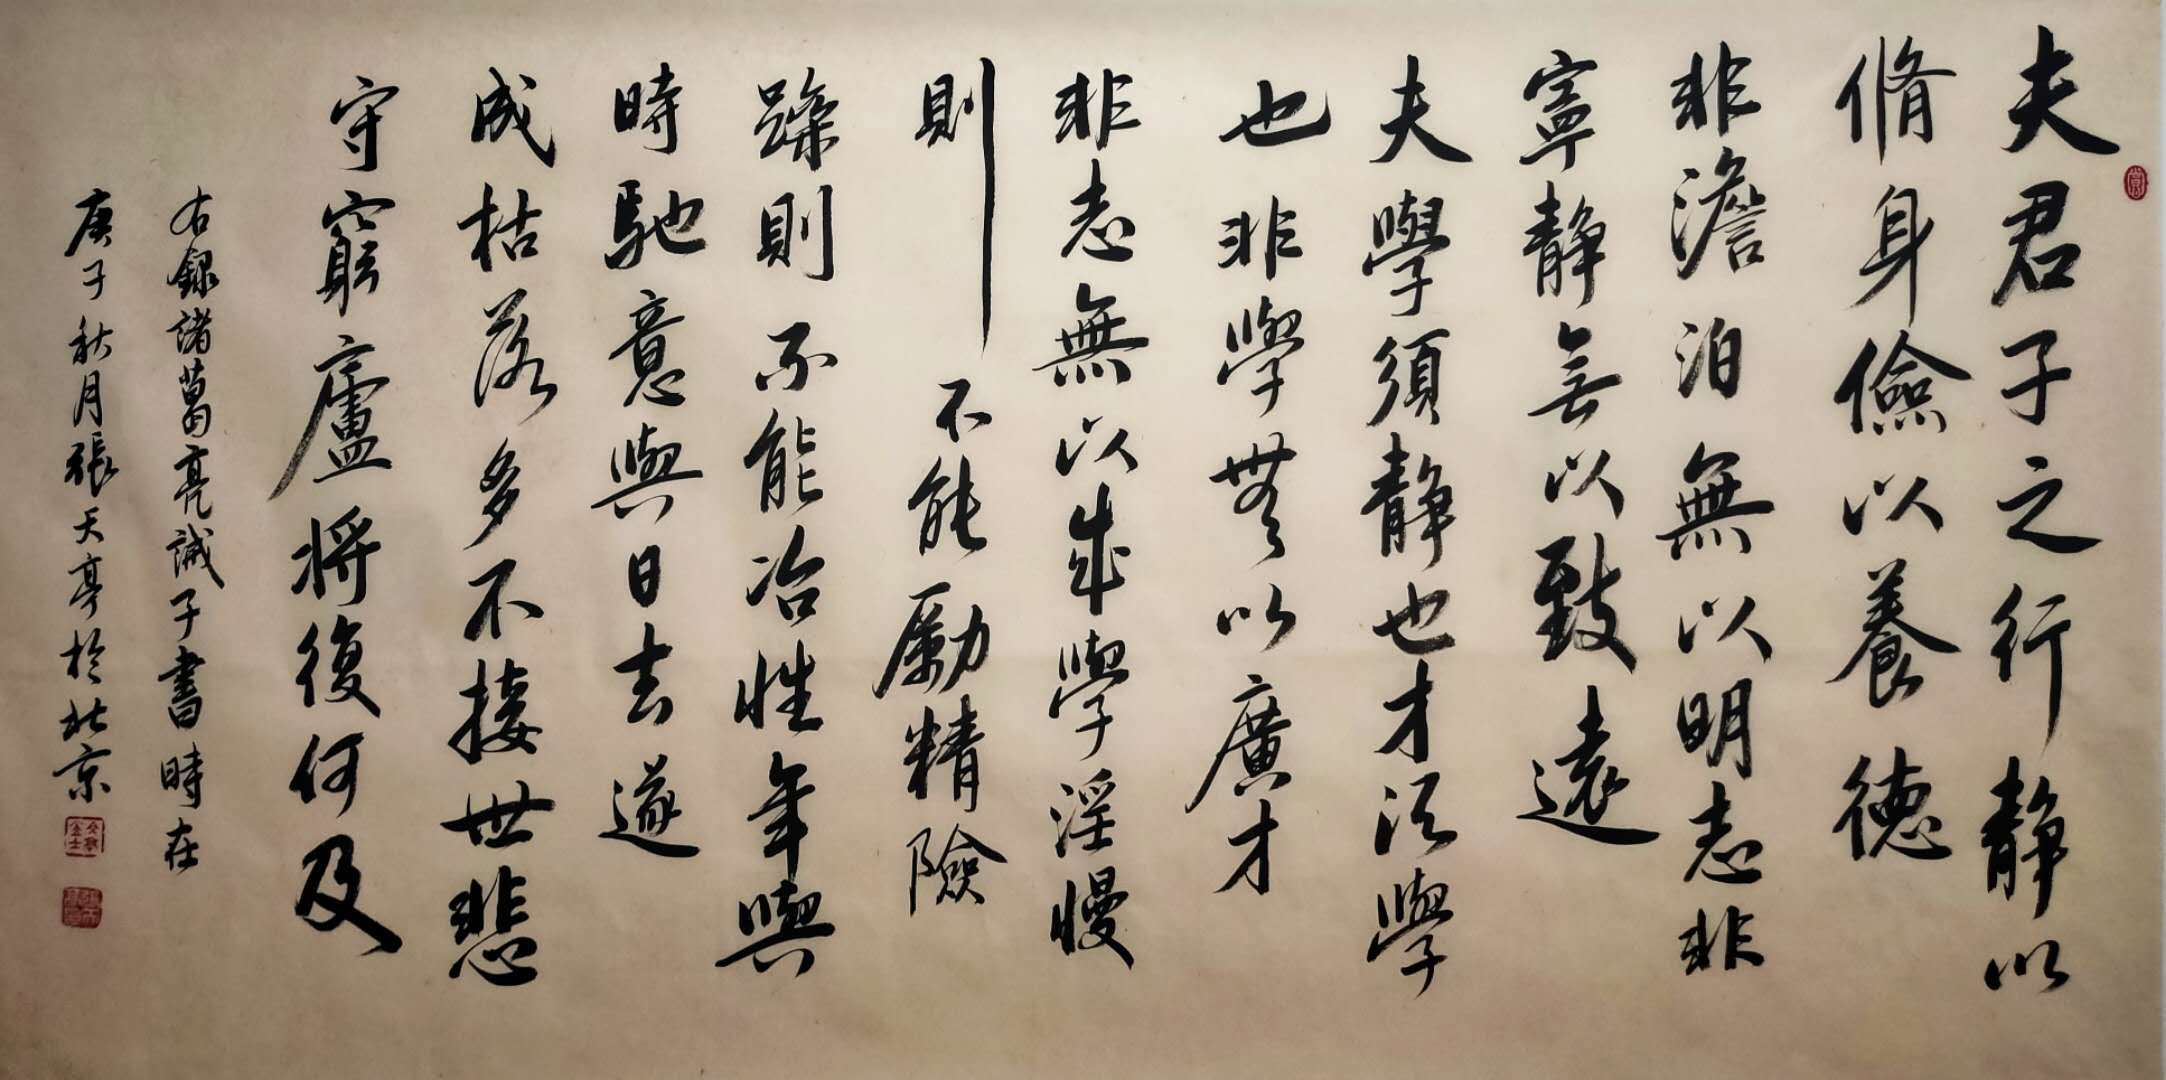 夫君子之行静以
脩身儉以養德
非澹泊無以明志非
寧静無以致遠
夫學須静也才須學
也非學無以廣才
非志無以成學淫慢
則不能勵精險
躁則不能冶性年與
時馳意與日去遂
成枯落多不接世悲
守窮廬將復何及
右録諸葛亮誡子書時在
庚子秋月張天亭於北京